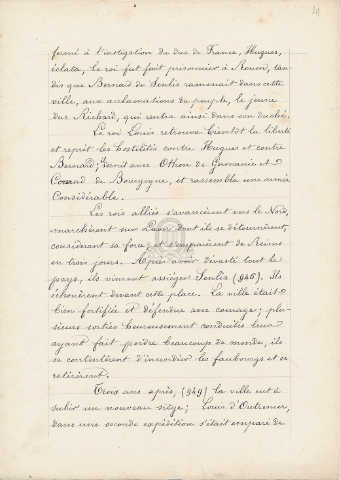 formé à l'instigation du duc de France, Hugues,
éclata, le roi fut fait prisonnier à Rouen, tan-
dis que Bernard de Senlis ramenait dans cette
ville, aux acclamations du peuple, le jeune
duc Richard, qui rentra ainsi dans son duché.
Le roi Louis retrouva bientôt la liberté
et reprit les hostilités contre Hugues et contre
Bernard; s'unit avec Othon de Germanie et
Conrad de Bourgogne, et rassembla une armée
Considérable.
Les rois alliés s'avancèrent vers le Nord,
marchèrent sur Laon dont ils se détournèrent,
considérant sa force, et s'emparèrent de Reims
en trois jours. Après avoir dévasté tout le
pays, ils vinrent assiéger Senlis (946). Ils
échouèrent devant cette place. La ville était
bien fortifiée et défendue avec courage; plu-
sieurs sorties heureusement conduites leur
ayant fait perdre beaucoup de monde, ils
se contentèrent d'incendier les faubourgs et se
retirèrent.
Trois ans après, (949) la ville eut à
subir un nouveau siège; Louis d'Outremer,
dans une seconde expédition s'était emparé de